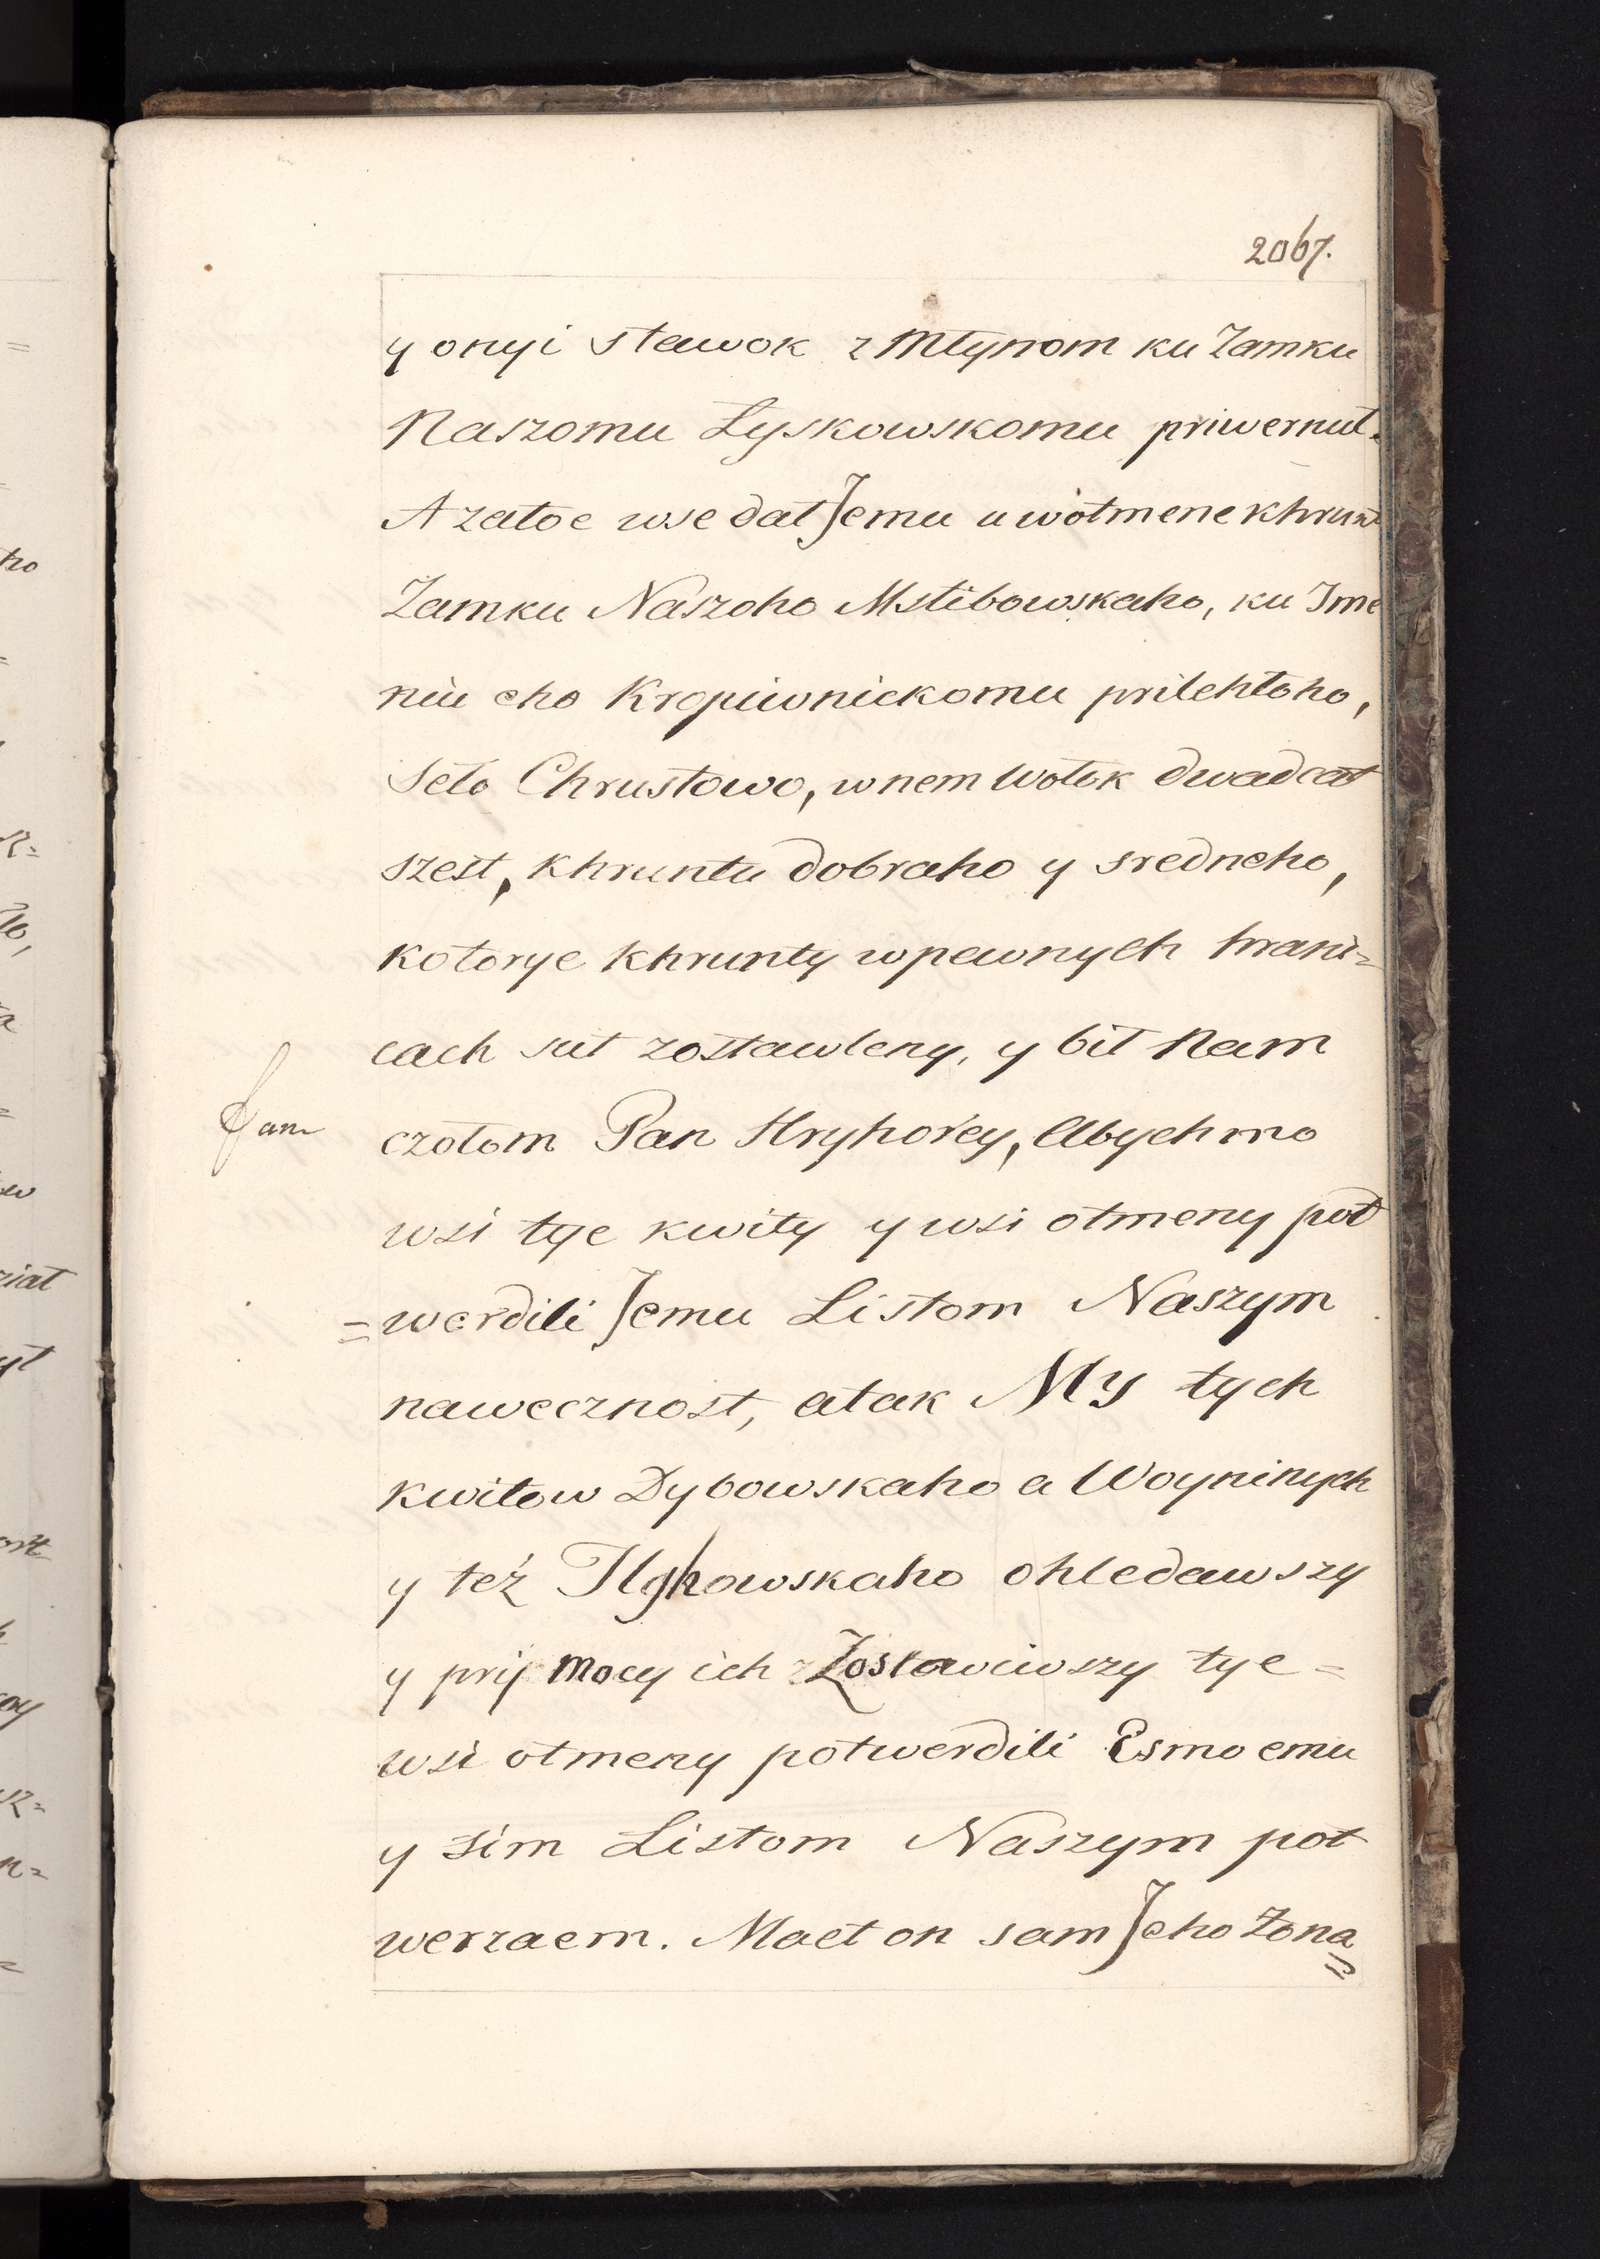 2067.
y onyi stawok z Młynom ku Zamku
Naszomu Łyskowskomu priwernuł.
A zatoe wse dał Jemu u wotmene khrunt
Zamku Naszoho Mstibowskaho, ku Jme
niu eho Kropiwnickomu prilehłoho,
Seło Chrustowo, wnem Wołok dwadcat
szest, khruntu dobraho y sredneho,
kotorye khrunty wpewnych hrani=
cach sut zostawleny, y bił Nam
czołom Pan Hryhorey, Abychmo
wsi tye kwity y wsi otmeny pot
=werdili Jemu Listom Naszym
nawecznost, atak My tych
kwitow Dybowskaho a Woyninych
y też Ilghowskaho ohledawszy
y pri mocy ich Zostawiwszy tye=
wsi otmeny potwerdili Esmo emu
y sim Listom Naszym pot
werzaem. Maet on sam Jeho żona=